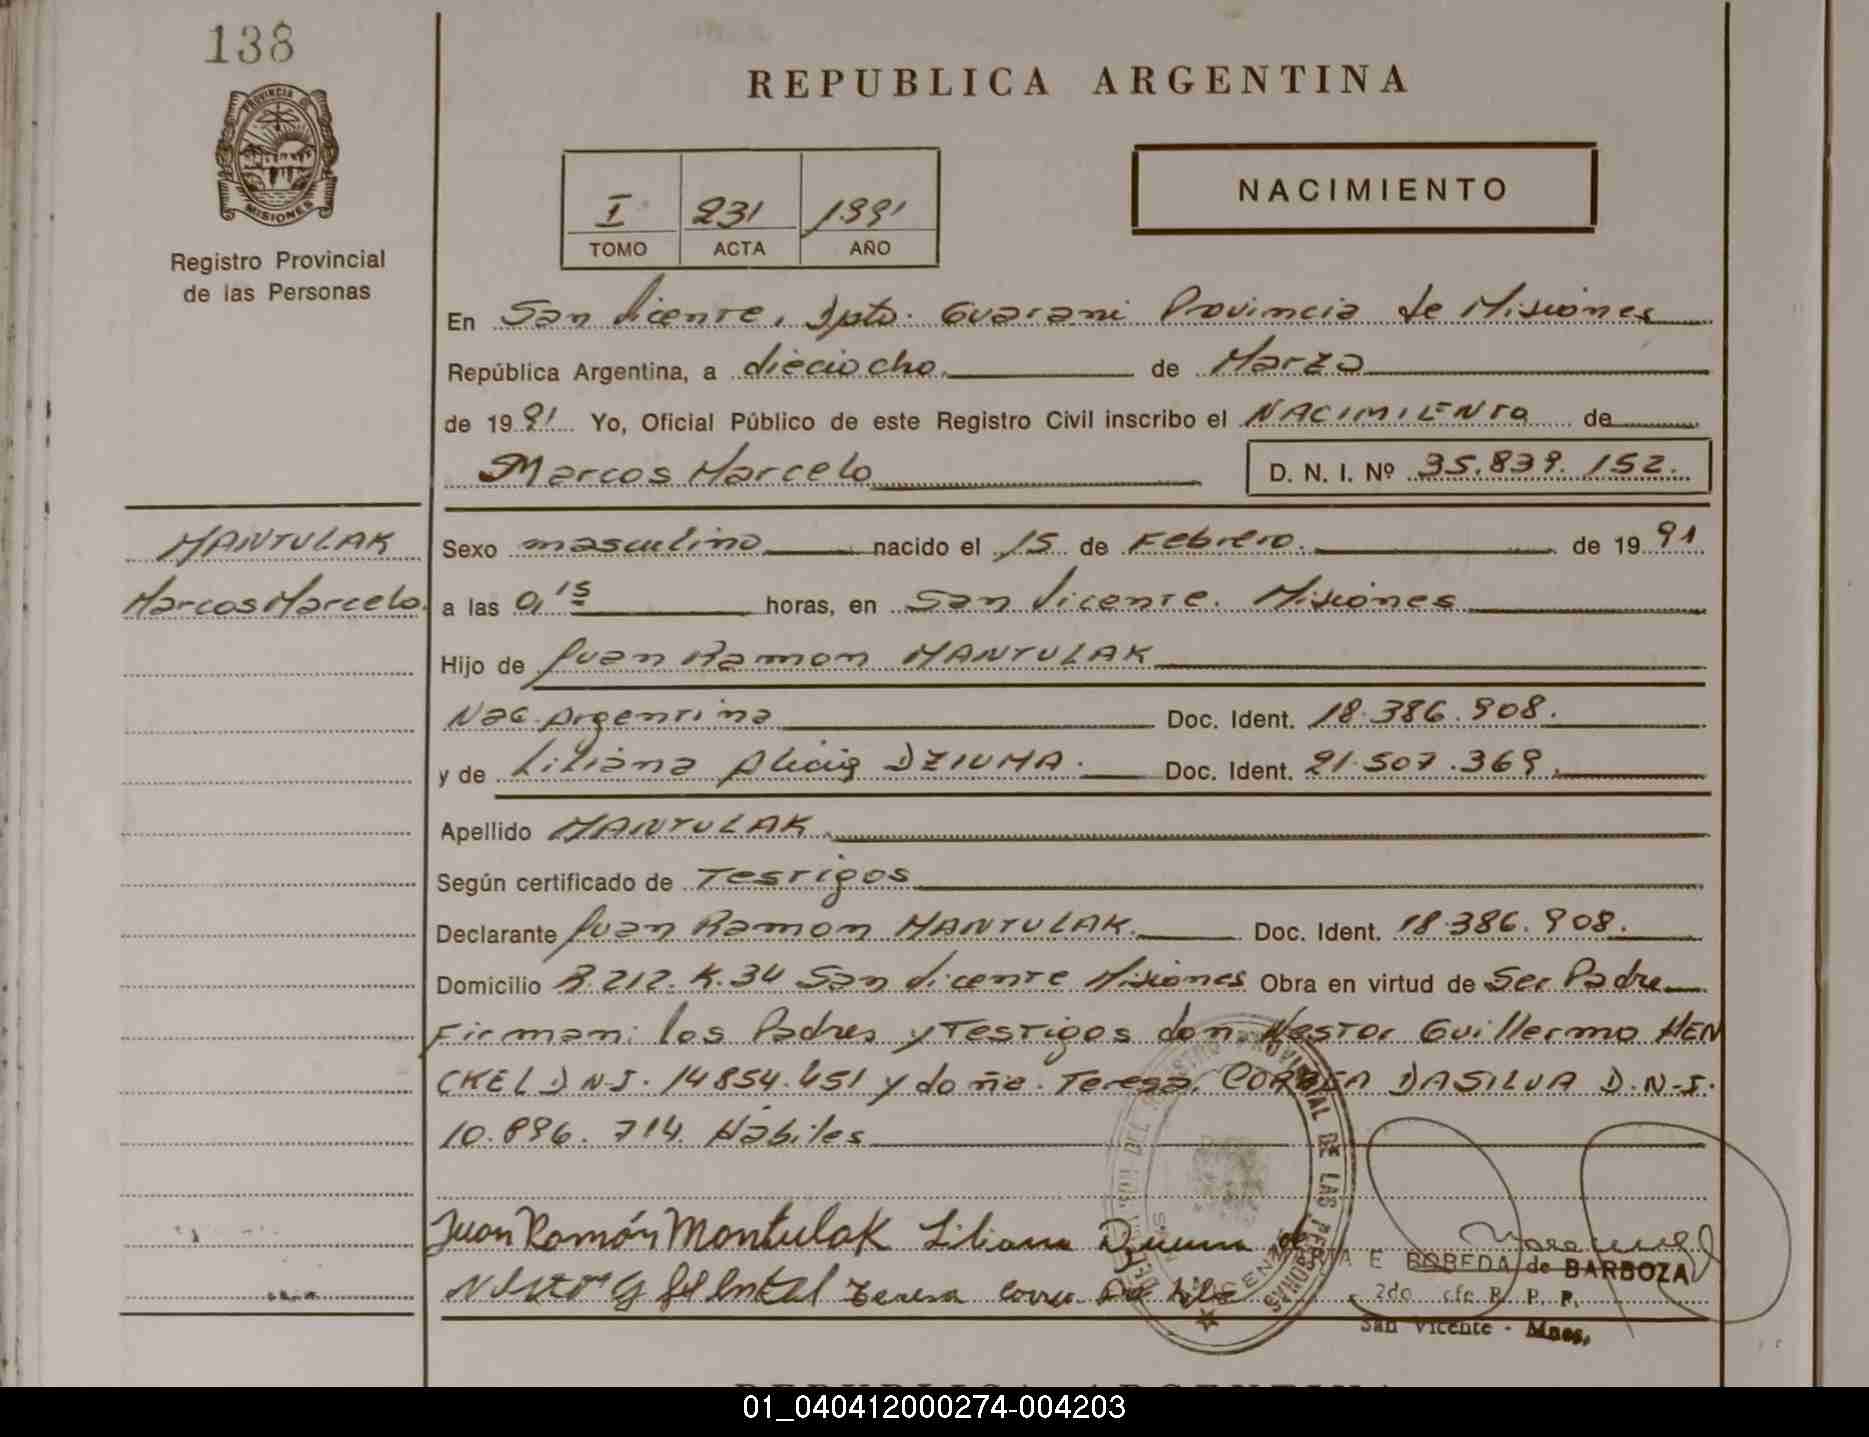 138
REPUBLICA ARGENTINA
PROVINCIA DE
MISIONES
Registro Provincial
de las Personas
I 231 1991
TOMO ACTA AÑO
NACIMIENTO
En San Vicente, Dpto. Guarani Provincia de Misiones
República Argentina, a dieciocho de Marzo
de 1991 Yo, Oficial Público de este Registro Civil inscribo el NACIMIENTO de
Marcos Marcelo D. N. I. Nº 35.839.152.
MANTULAK
Marcos Marcelo.
Sexo masculino nacido el 15 de Febrero. de 1991
a las 0,15 horas, en San Vicente. Misiones
Hijo de Juan Ramon MANTULAK
Nac. Argentina Doc. Ident. 18.386.908.
y de Liliana Alicia DZIUMA. Doc. Ident. 21.507.369.
Apellido MANTULAK
Según certificado de Testigos
Declarante Juan Ramon MANTULAK. Doc. Ident. 18.386.908.
Domicilio R.212. K.34 San Vicente Misiones Obra en virtud de Ser Padre
Firman: los Padres y Testigos don Nestor Guillermo HEN
CKEL D.N.I. 14854.451 y doña. Teresa. CORREA DASILVA D.N.I.
10.896.714. Hábiles
Juan Ramón Mantulak Liliana Dziuma de
Teresa Correa Da Silva
MARTA E BOBEDA de BARBOZA
2do Jefe R. P. P.
San Vicente - Mnes.
REPUBLICA ARGENTINA
01_040412000274-004203